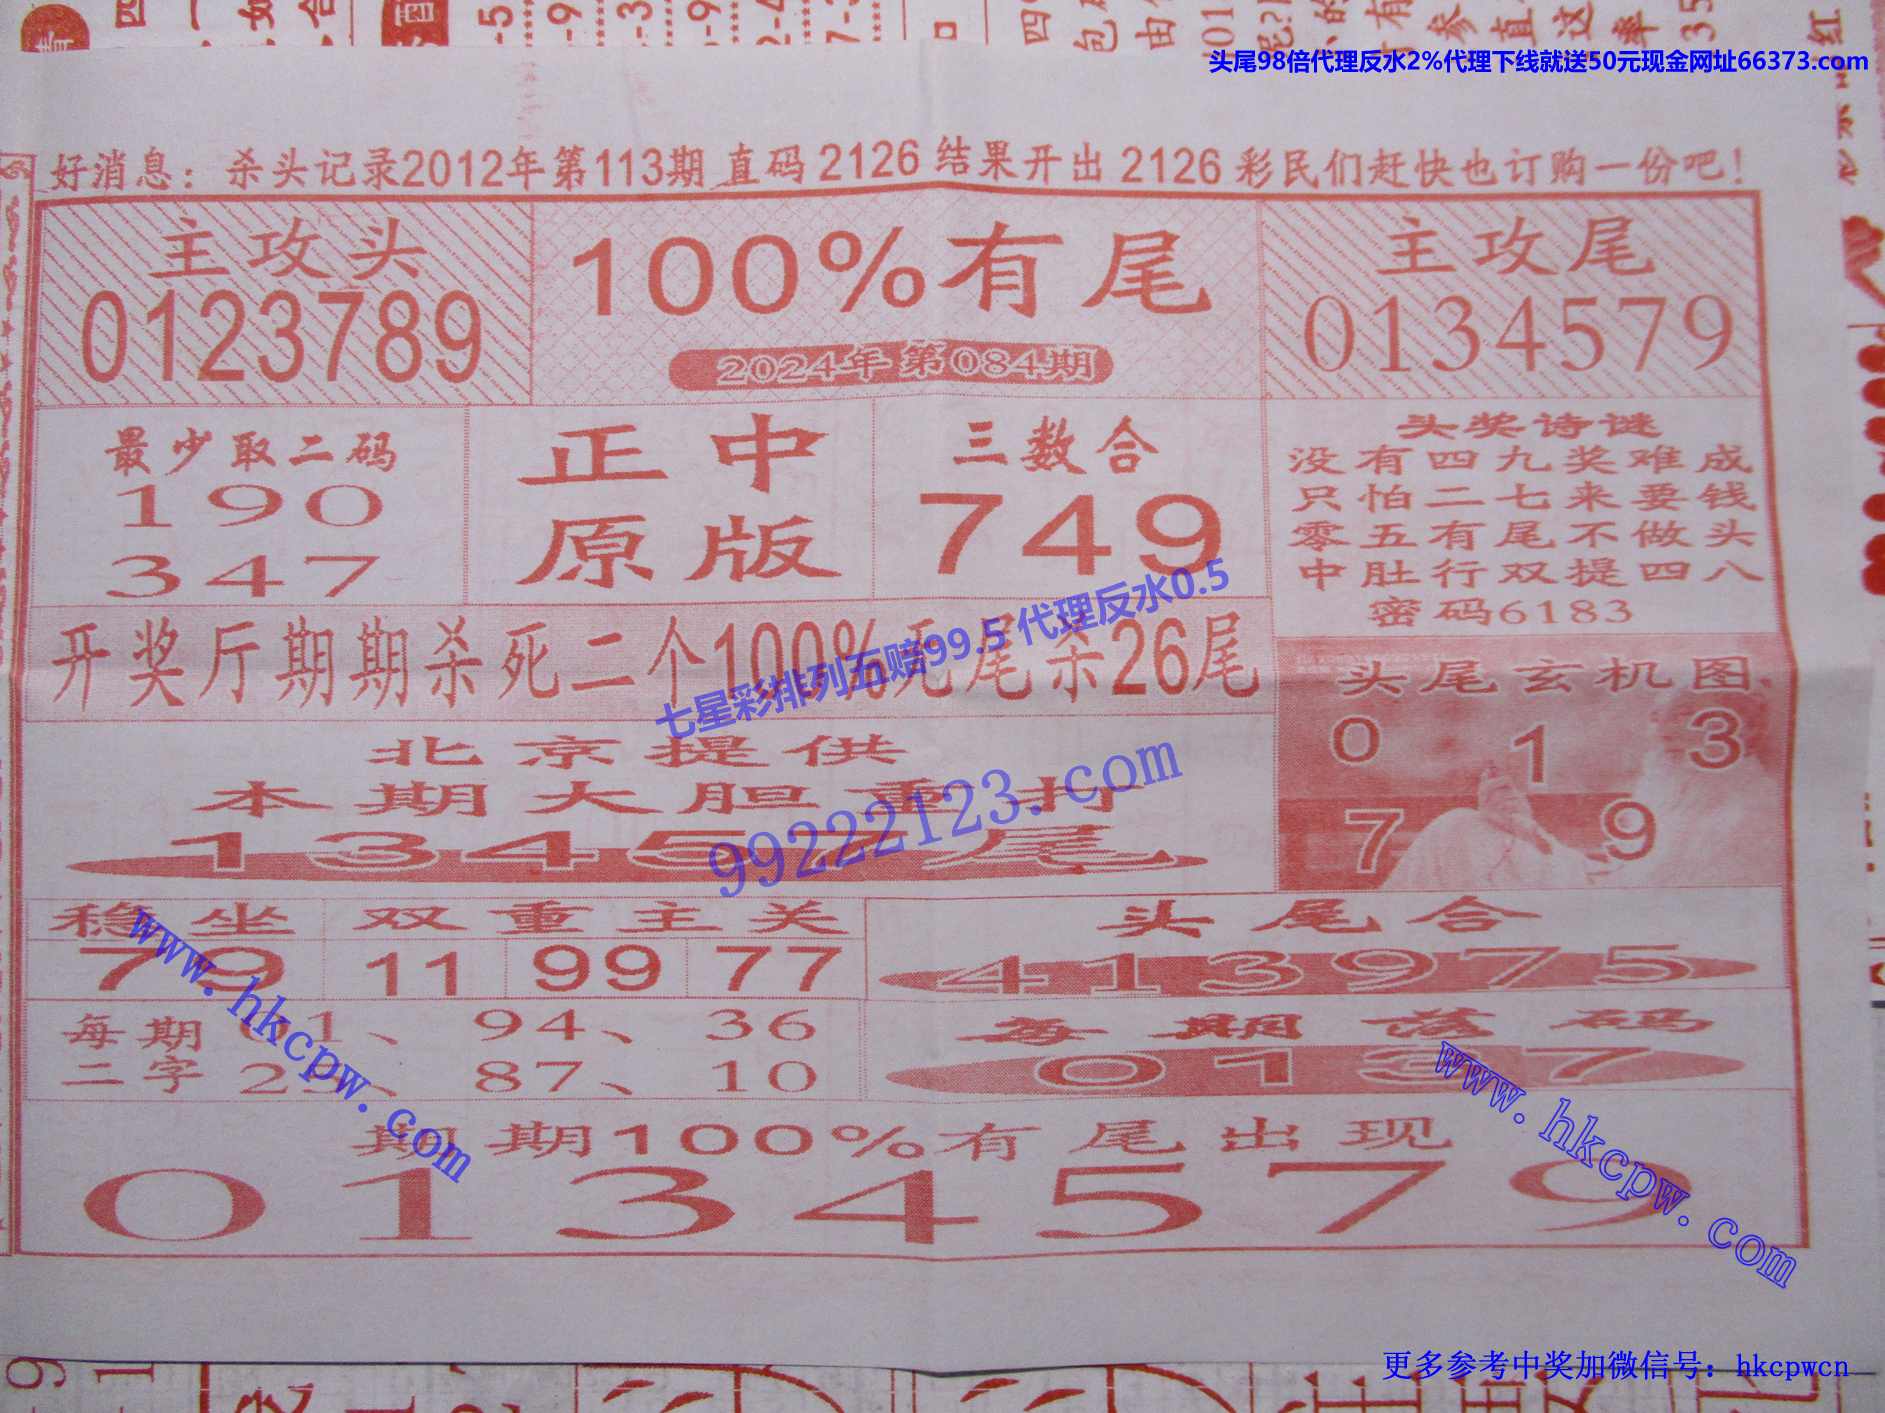 头尾98倍代理反水2%代理下线就送50元现金网址66373.com
好消息：杀头记录2012年第113期直码2126结果开出2126彩民们赶快也订购一份吧！
主攻头
0123789
100%有尾
2024年第084期
主攻尾
0134579
最少取二码
190
347
正中
原版
三数合
749
头奖诗谜
没有四九奖难成
只怕二七来要钱
零五有尾不做头
中肚行双提四八
密码6183
开奖厅期期杀死二个100%死尾杀26尾
七星彩排列五赔99.5 代理反水0.5
头尾玄机图
0 1 3
7 9
北京提供
本期大胆重打
13457尾
99222123.com
稳坐双重主关
79 11 99 77
头尾合
413975
每期二字
01、94、36
87、10
每期落码
0137
期期100%有尾出现
0134579
www.hkcpw.com
www.hkcpw.com
更多参考中奖加微信号：hkcpwcn